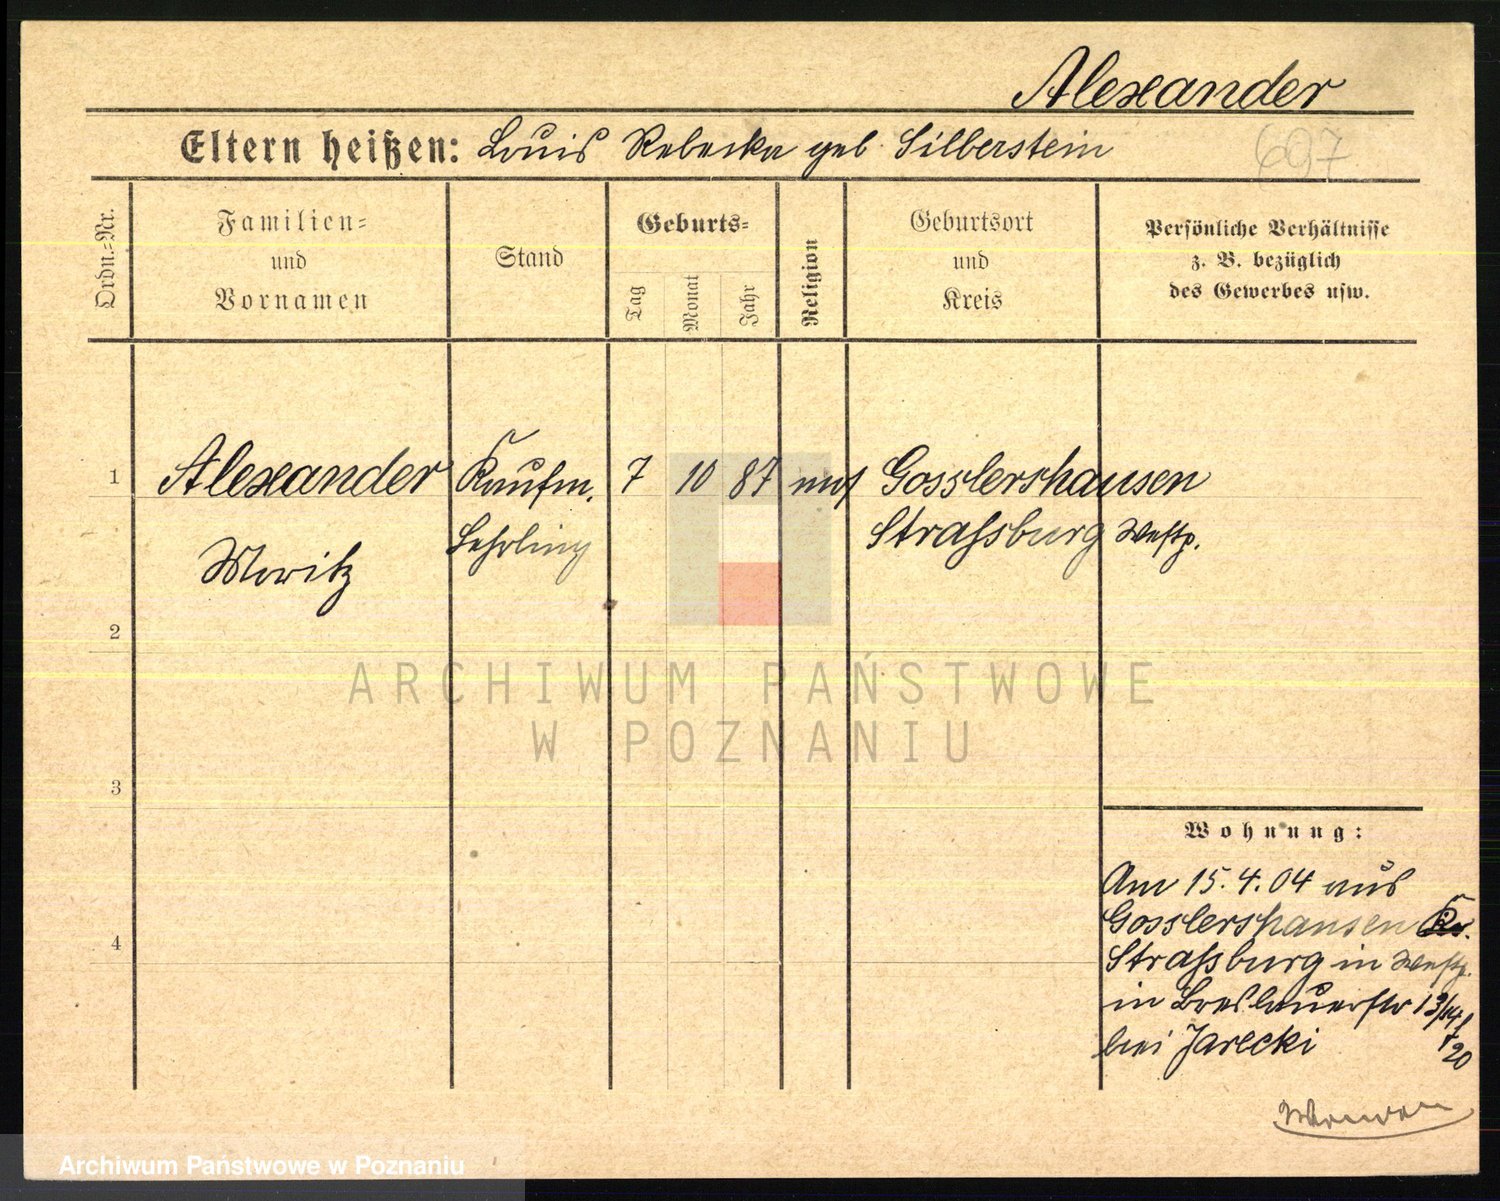 Alexander
Eltern heißen: Louis Rebecka geb Silberstein
697
Ordn.-Nr.
Familien-
und
Vornamen
Stand
Geburts-
Tag
Monat
Jahr
Religion
Geburtsort
und
Kreis
Persönliche Verhältnisse
z. B. bezüglich
des Gewerbes usw.
1 Alexander Kaufm. 7 10 87 mos Gosslershausen
Moritz Lehrling Straßburg Westp.
2
ARCHIWUM PAŃSTWOWE
W POZNANIU
3
Wohnung:
Am 15.4.04 aus
Gosslershausen Kr.
4
Straßburg in Westp.
in Breslauerstr 13/14
bei Jarecki
Archiwum Państwowe w Poznaniu